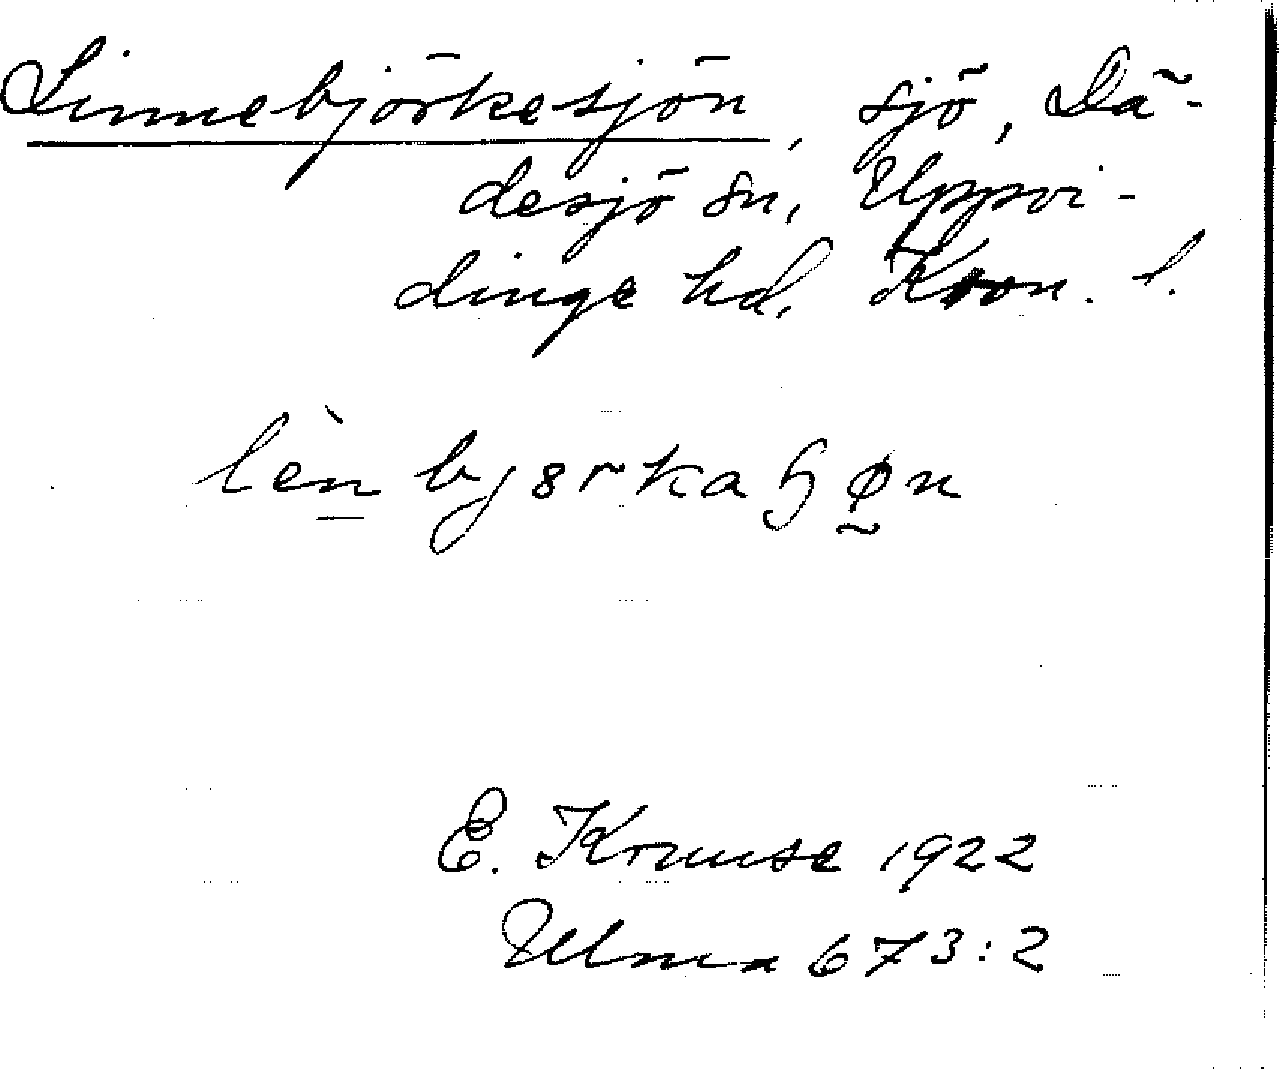 Linnebjörkesjön, sjö, Dä-
desjö sn, Uppvi-
dinge hd, Kron. l.
lèn bjørkaɧøn
E. Kruuse 1922
Ulma 673:2